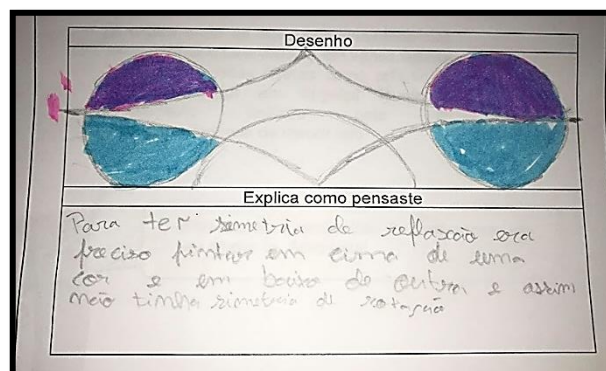 Desenho
Explica como pensaste
Para ter simetria de reflaxão era
preciso pintar em cima de uma
cor e em baixo de outra e assim
não tinha simetria de rotação